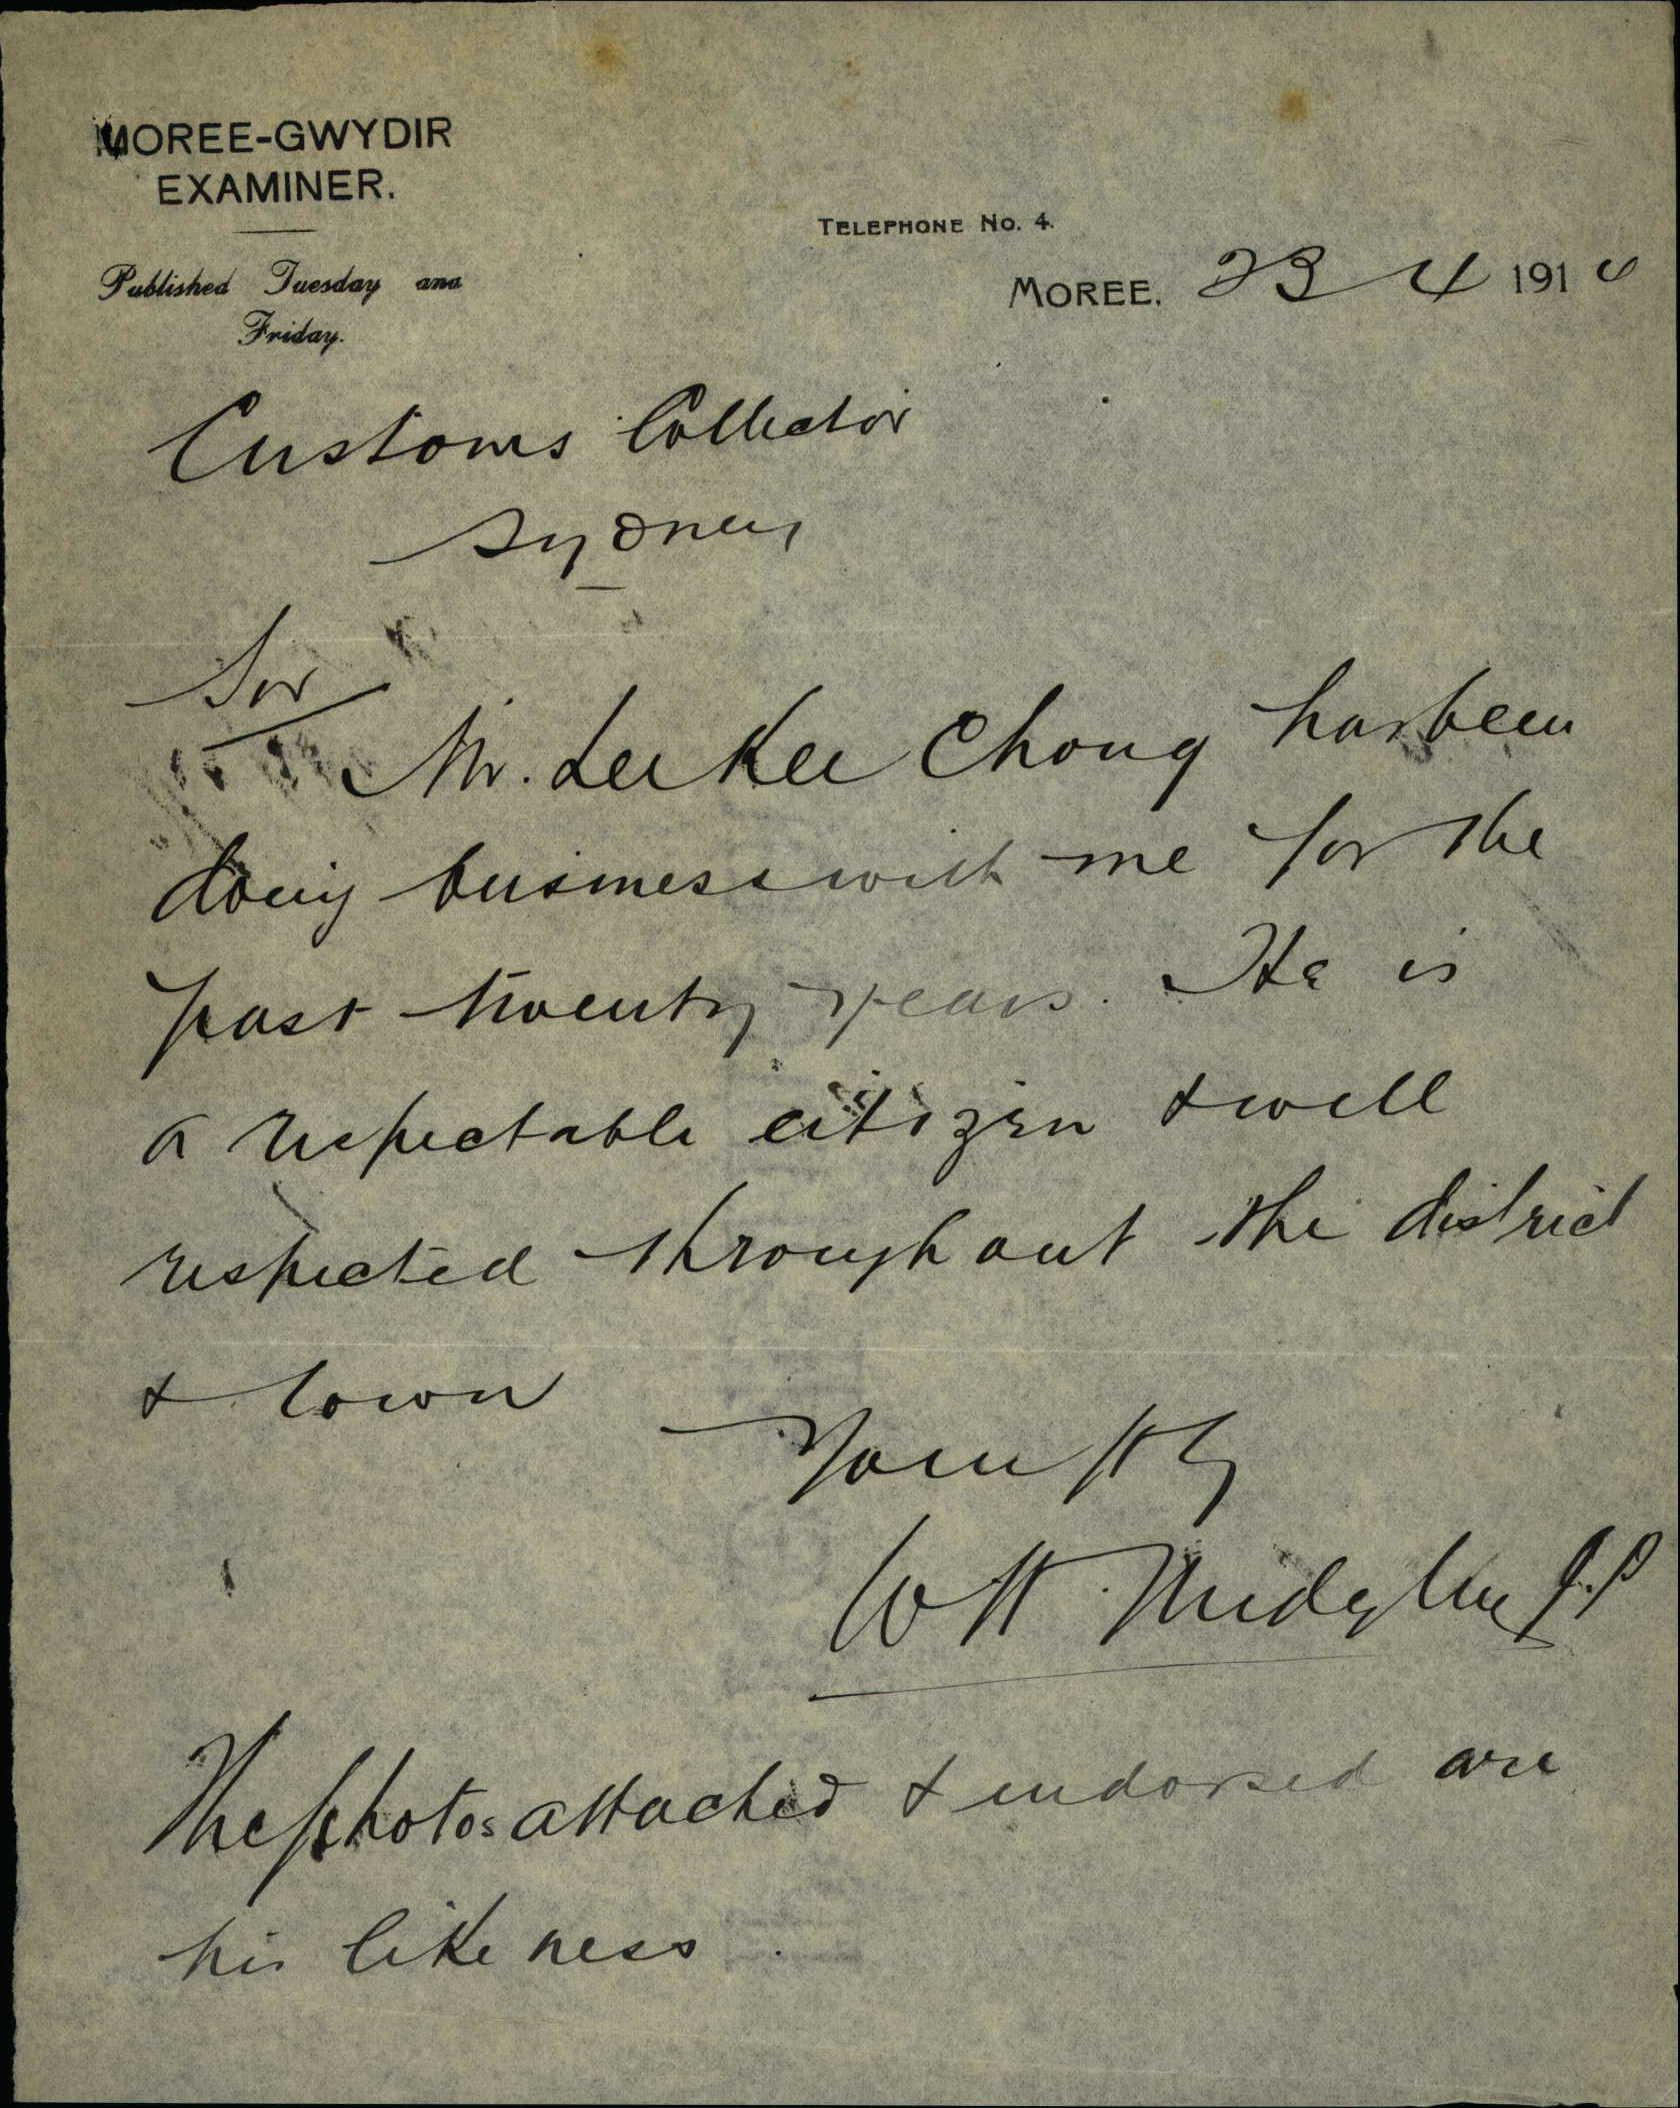 MOREE-GWYDIR
EXAMINER.
Published Tuesday and
Friday.
TELEPHONE No. 4.
MOREE. 23 4 191
Customs Collector
Sydney
Sir
Mr. Lee Kee Chong has been
doing business with me for the
past twenty years. He is
a respectable citizen & well
respected throughout the district
& town
Yours tly
W H Midgley J.P
The photos attached & endorsed are
his likeness